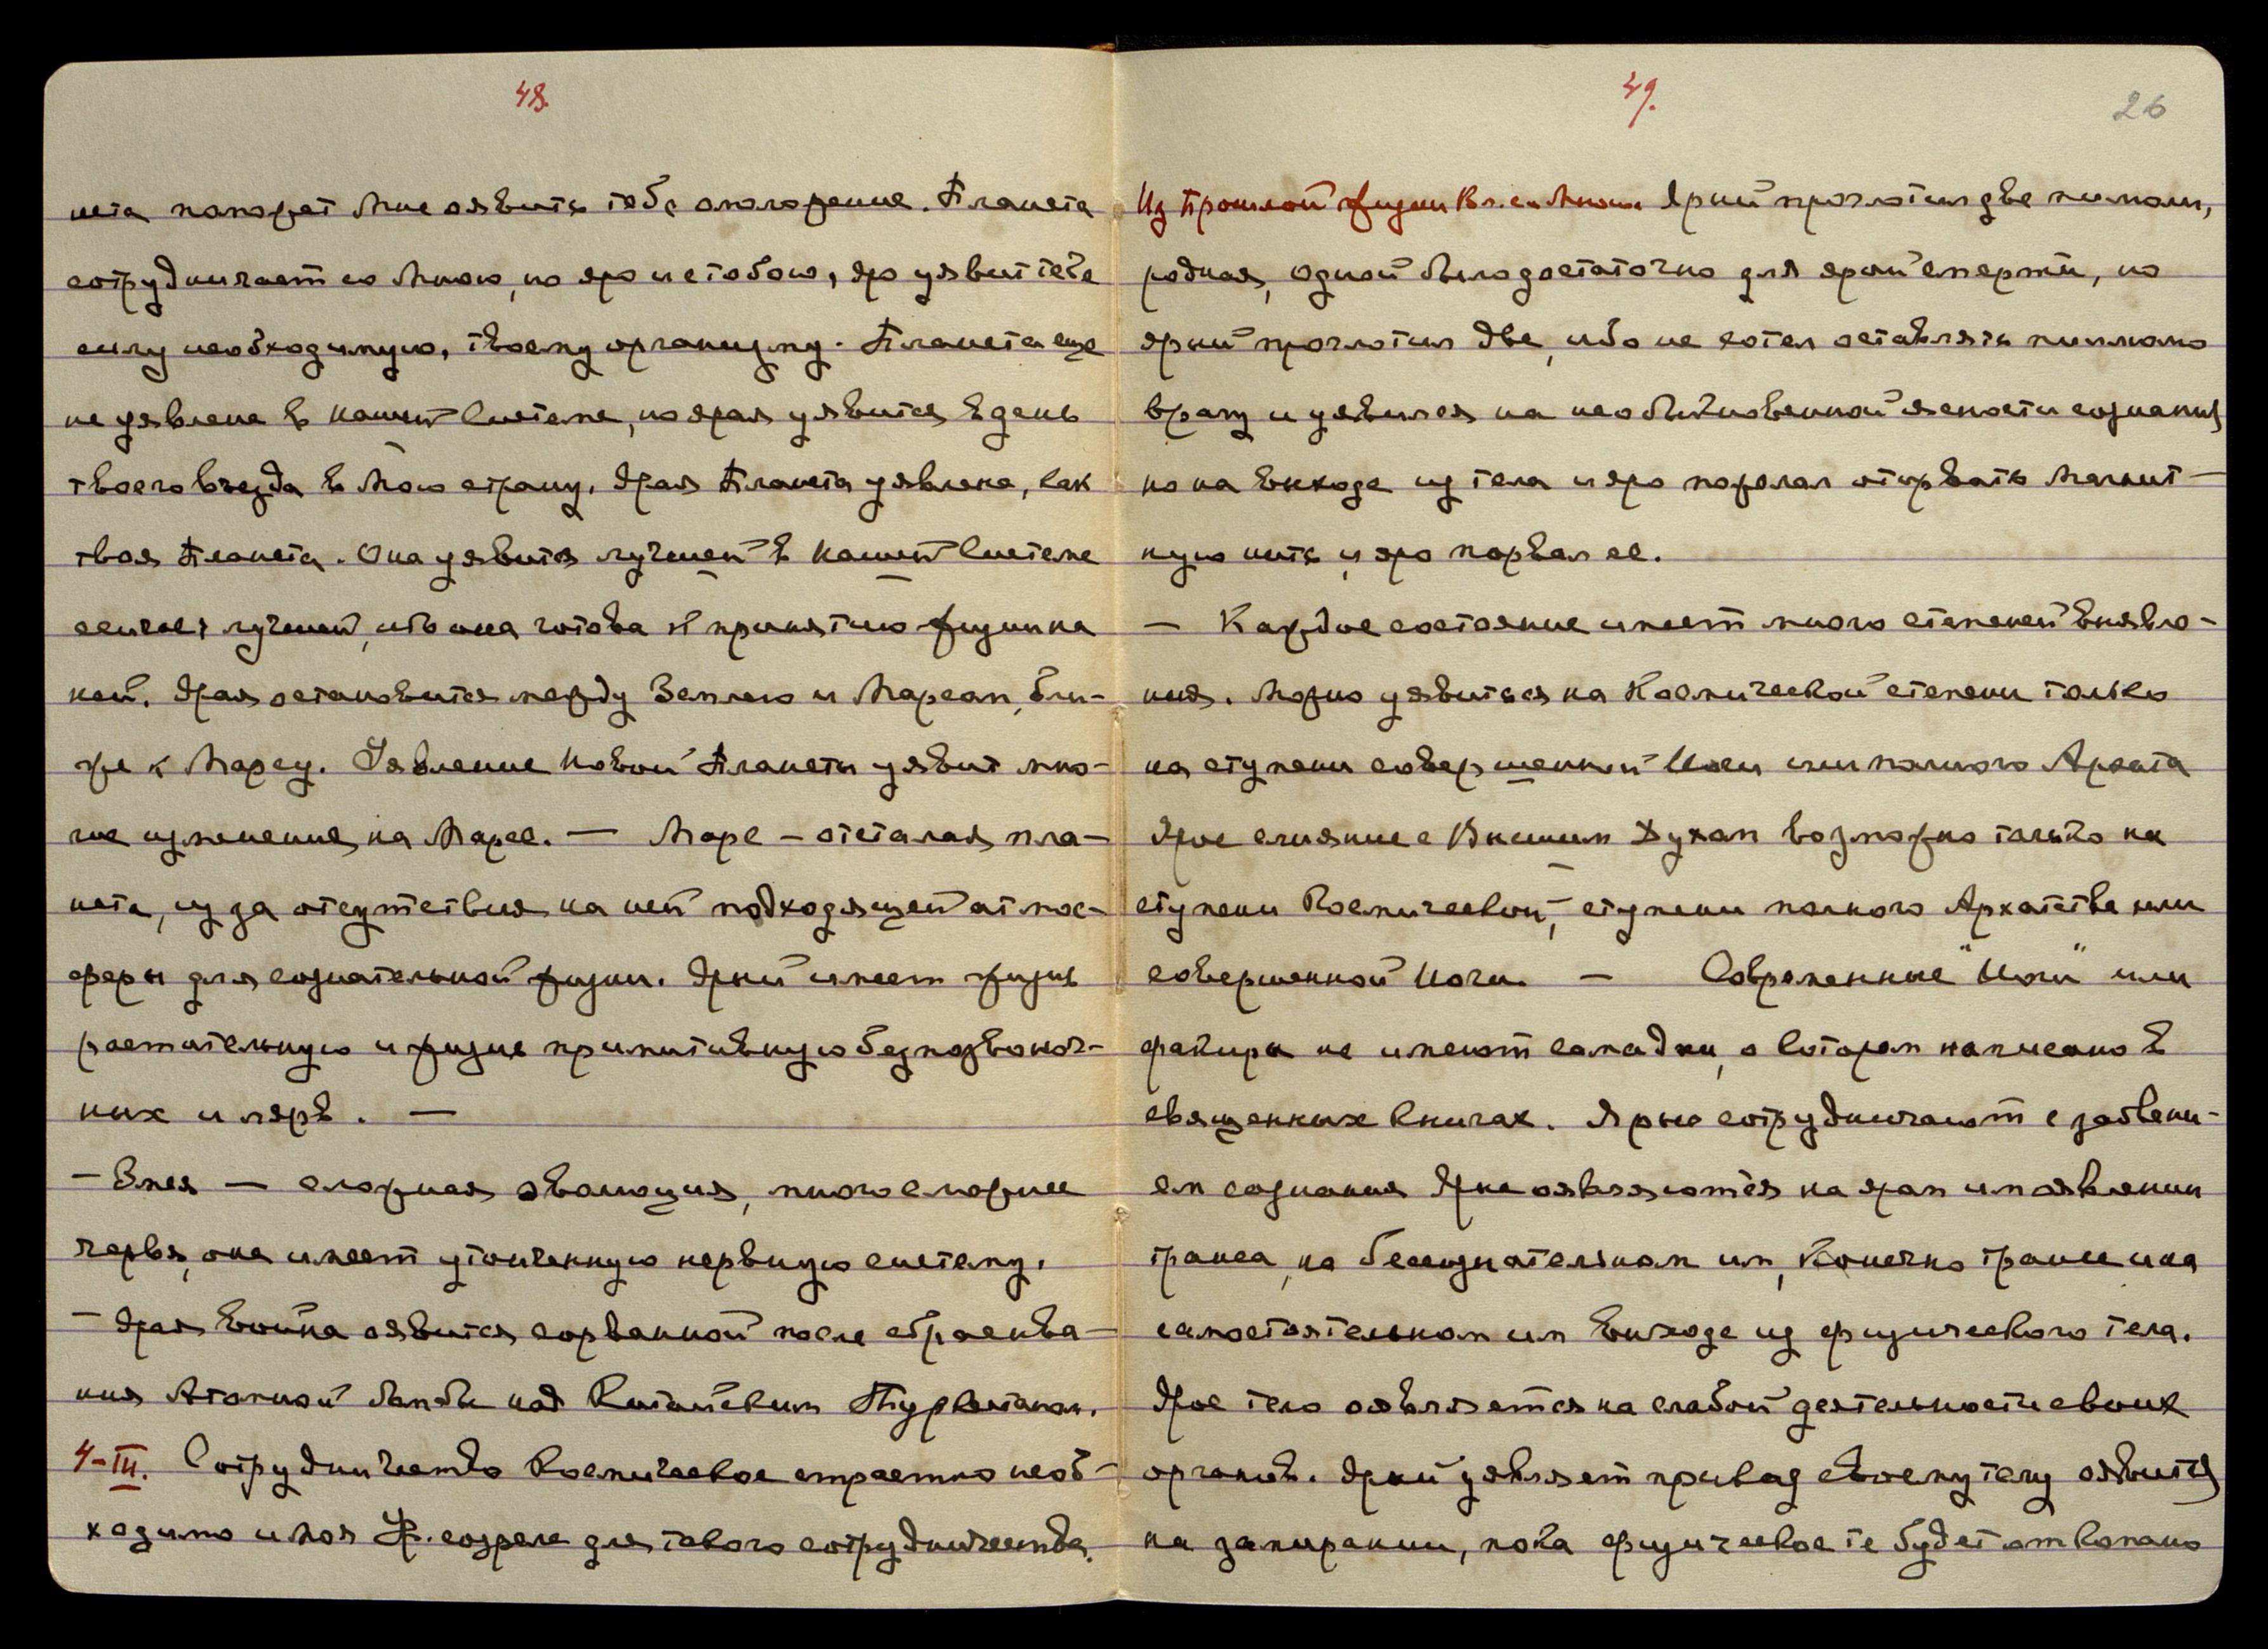 48.
нета поможет Мне оявить тебе омоложение. Планета
сотрудничает со Мною, но яро и с тобою, яро уявит тебе
силу необходимую, твоему организму. Планета еще
не уявлена в нашей системе, но ярая уявится в день
твоего въезда в Мою страну. Ярая Планета уявлена, как
твоя Планета. Она уявится лучшей в нашей системе
сейчас лучшей, ибо она готова к принятию жизни на
ней. Ярая остановится между Землею и Марсом, бли-
же к Марсу. Уявление Новой Планеты уявит мно-
гие изменения на Марсе. — Марс – отсталая пла-
нета, из за отсутствия на ней подходящей атмос-
феры для сознательной жизни. Ярый имеет жизнь
растительную и жизнь примитивную беспозвоноч-
ных и ларв. —
– Змея — сложная эволюция, много сложнее
червя, она имеет утонченную нервную систему.
– Ярая война оявится сорванной после сбрасыва-
ния Атомной бомбы над Китайским Туркестаном.
4-III. Сотрудничество Космическое страстно необ-
ходимо и Моя Ур. созрела для такого сотрудничества.
49.
26
Из прошлой жизни Вл. с Мною Ярый проглотил две пилюли,
родная, одной было достаточно для ярой смерти, но
ярый проглотил две, ибо не хотел оставлять пилюлю
врагу и уявился на необычновенной ясности сознания
но на выходе из тела и яро пожелал оторвать Магнит-
ную нить и яро порвал ее.
– Каждое состояние имеет много степеней выявле-
ния. Можно уявиться на Космической степени только
на ступени совершенной Йоги или полного Архата
Ярое слияние с Высшим Духом возможно только на
ступени Космической, – ступени полного Архатства или
совершенной Йоги. — Современные "Йоги" или
факиры не имеют самадхи, о котором написано в
священных книгах. Ярые сотрудничают с забвени-
ем сознания Ярые оявляются на яром им оявлении
транса, на бессознательном им, Конечно трансе и на
самостоятельном им выходе из физического тела.
Ярое тело оявляется на слабой деятельности своих
органов. Ярый уявляет приказ своему телу оявится
на замирании, пока физическое те будет откопано